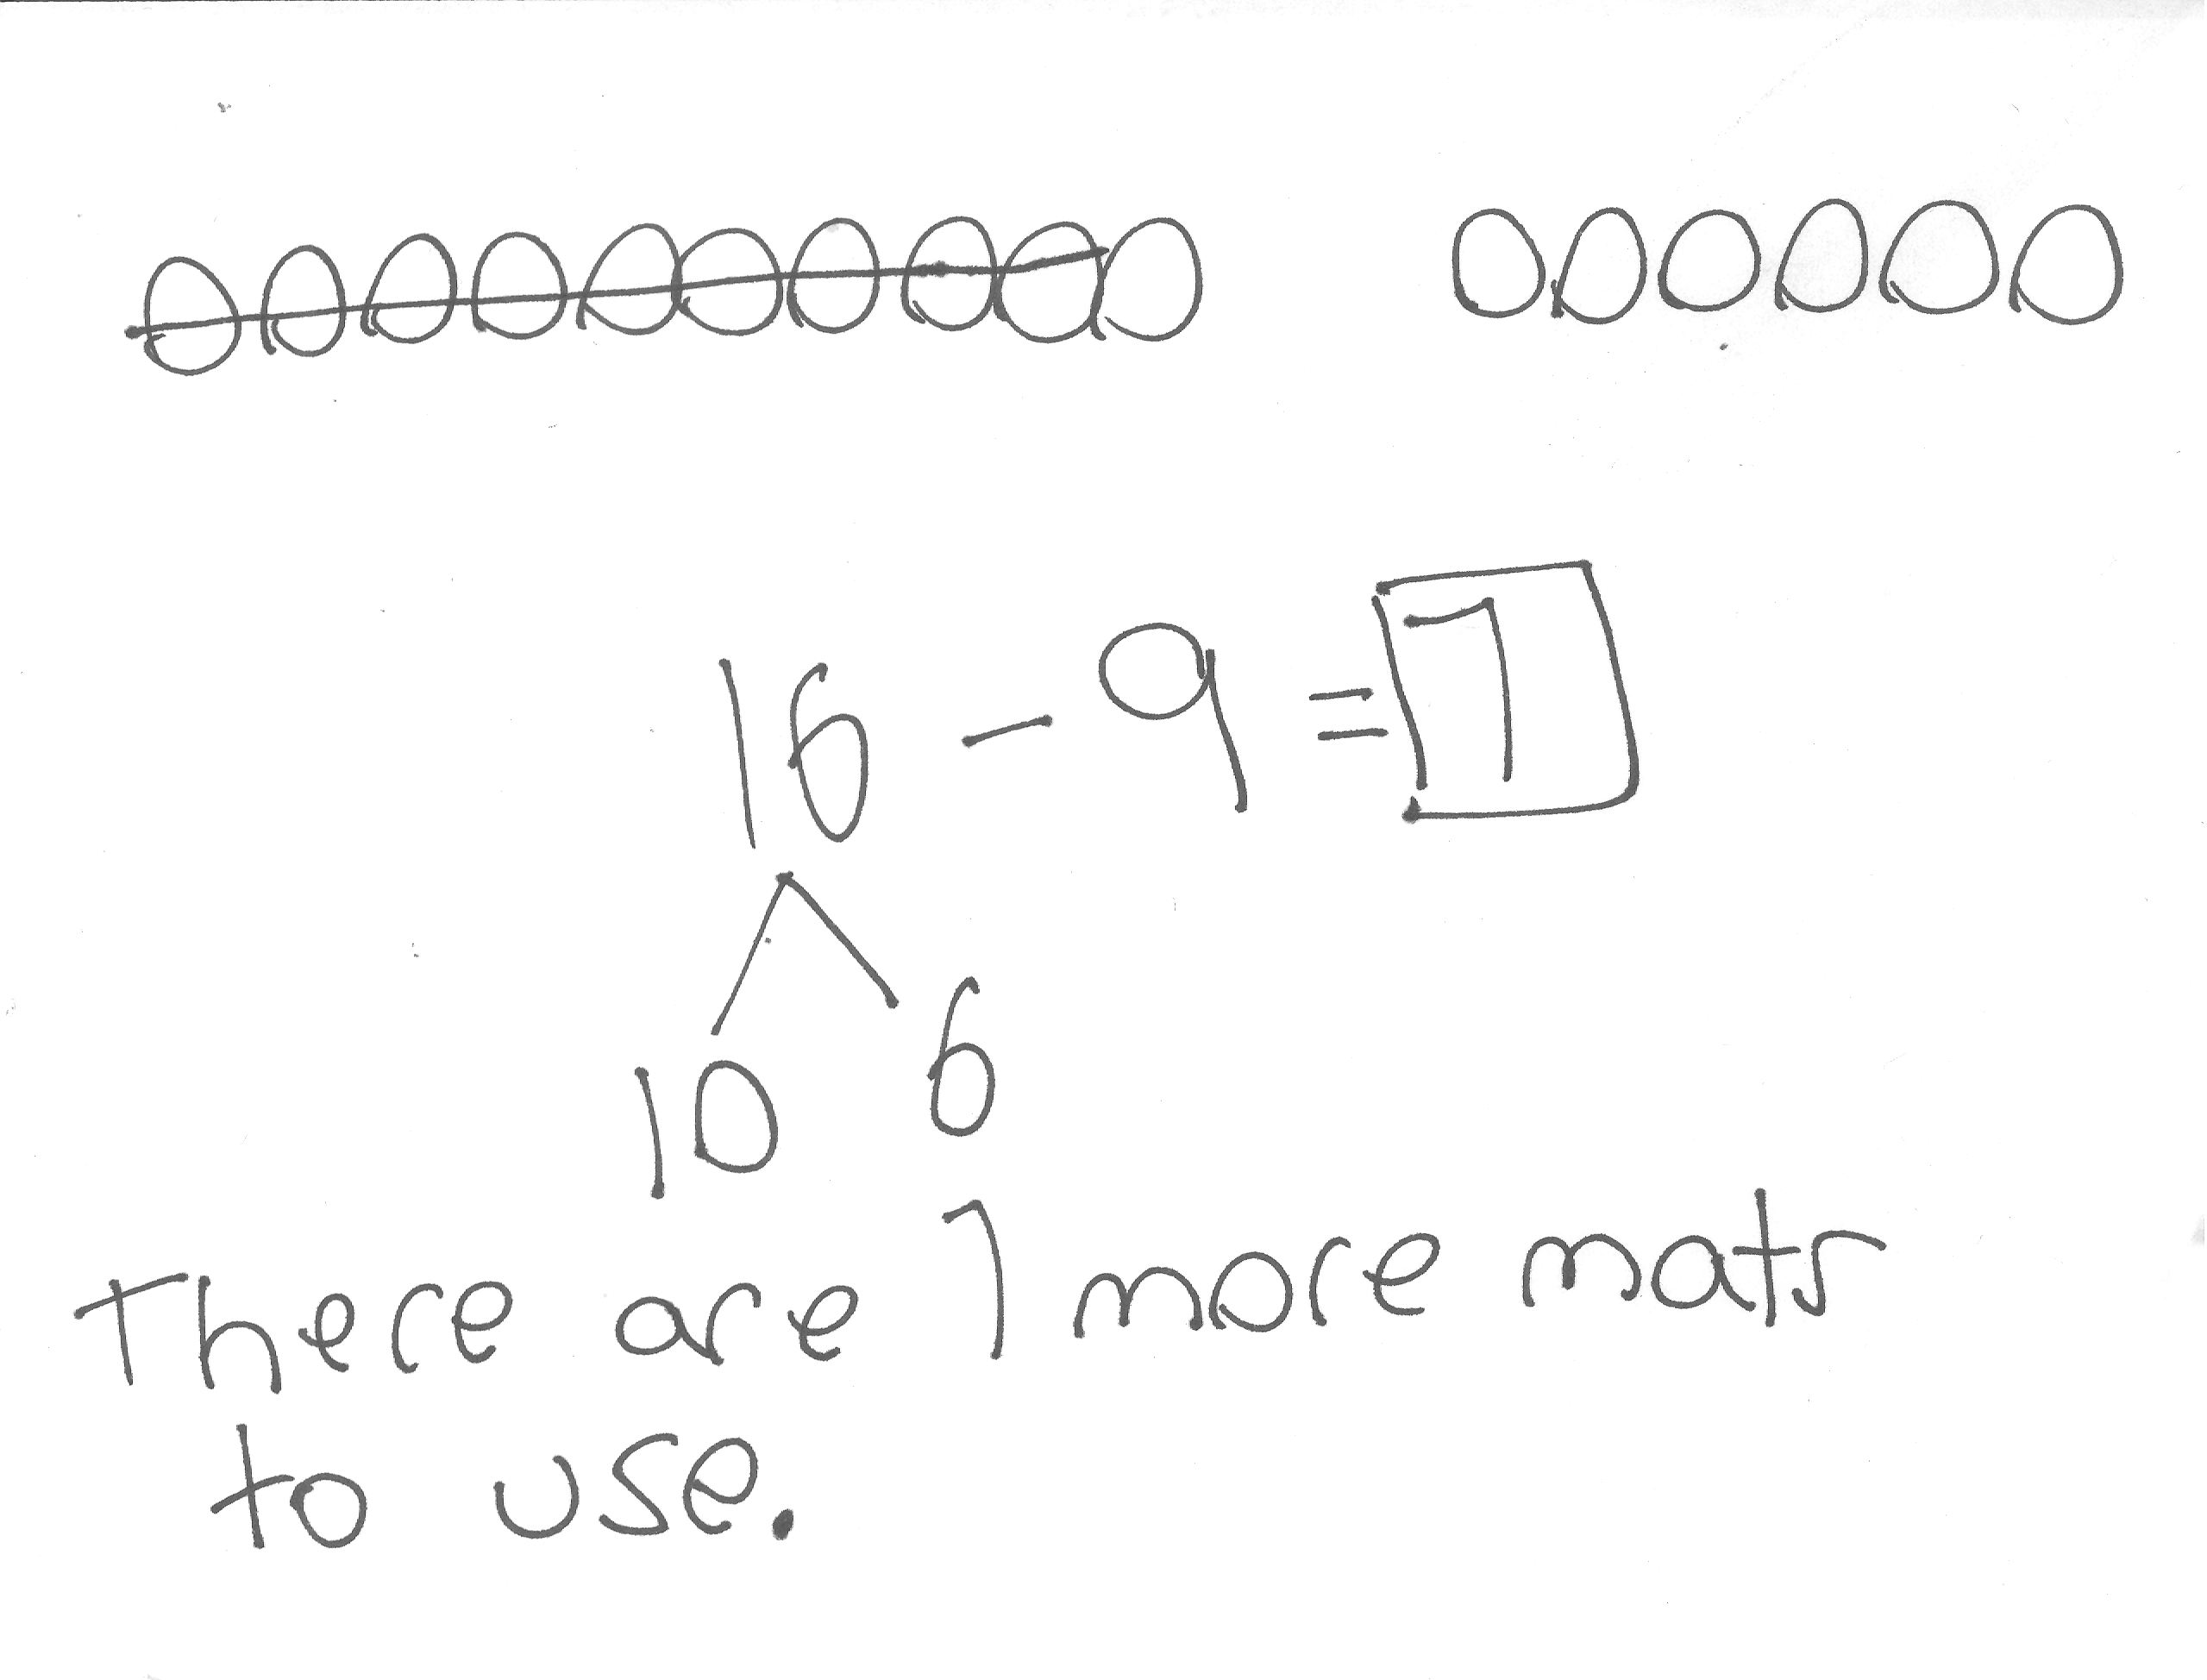 16 - 9 = 7
10 6
There are 7 more mats
to use.